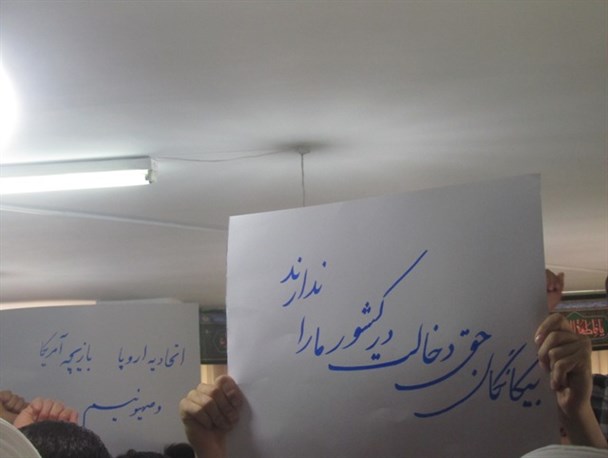 بیگانگان حق دخالت در کشور ما را
ندارند
اتحادیه اروپا بازیچه آمریکا
و صهیونیسم
یا فاطمة